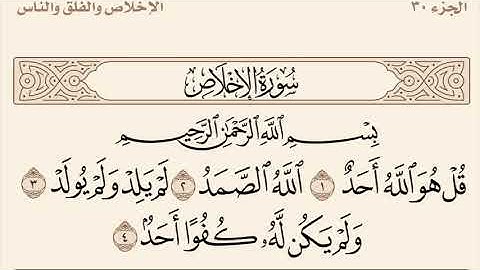 الجزء ٣٠
الإخلاص والفلق والناس
سُورَةُ الإِخْلَاصِ
بِسْمِ اللَّهِ الرَّحْمَٰنِ الرَّحِيمِ
قُلْ هُوَ اللَّهُ أَحَدٌ ١ اللَّهُ الصَّمَدُ ٢ لَمْ يَلِدْ وَلَمْ يُولَدْ ٣
وَلَمْ يَكُن لَّهُۥ كُفُوًا أَحَدٌۢ ٤